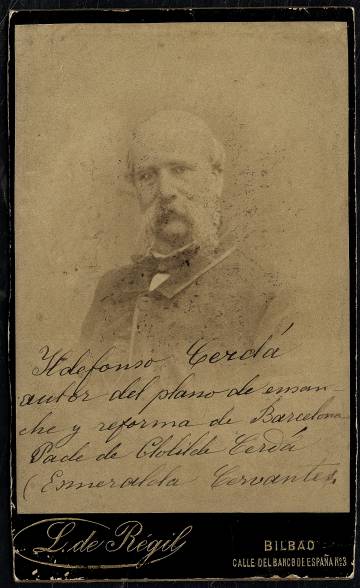 Ildefonso Cerdá
autor del plano de ensan-
che y reforma de Barcelona
Pade de Clotilde Cerdá
(Esmeralda Cervantes)
L. de Régil
BILBAO
CALLE DEL BANCO DE ESPAÑA Nº3